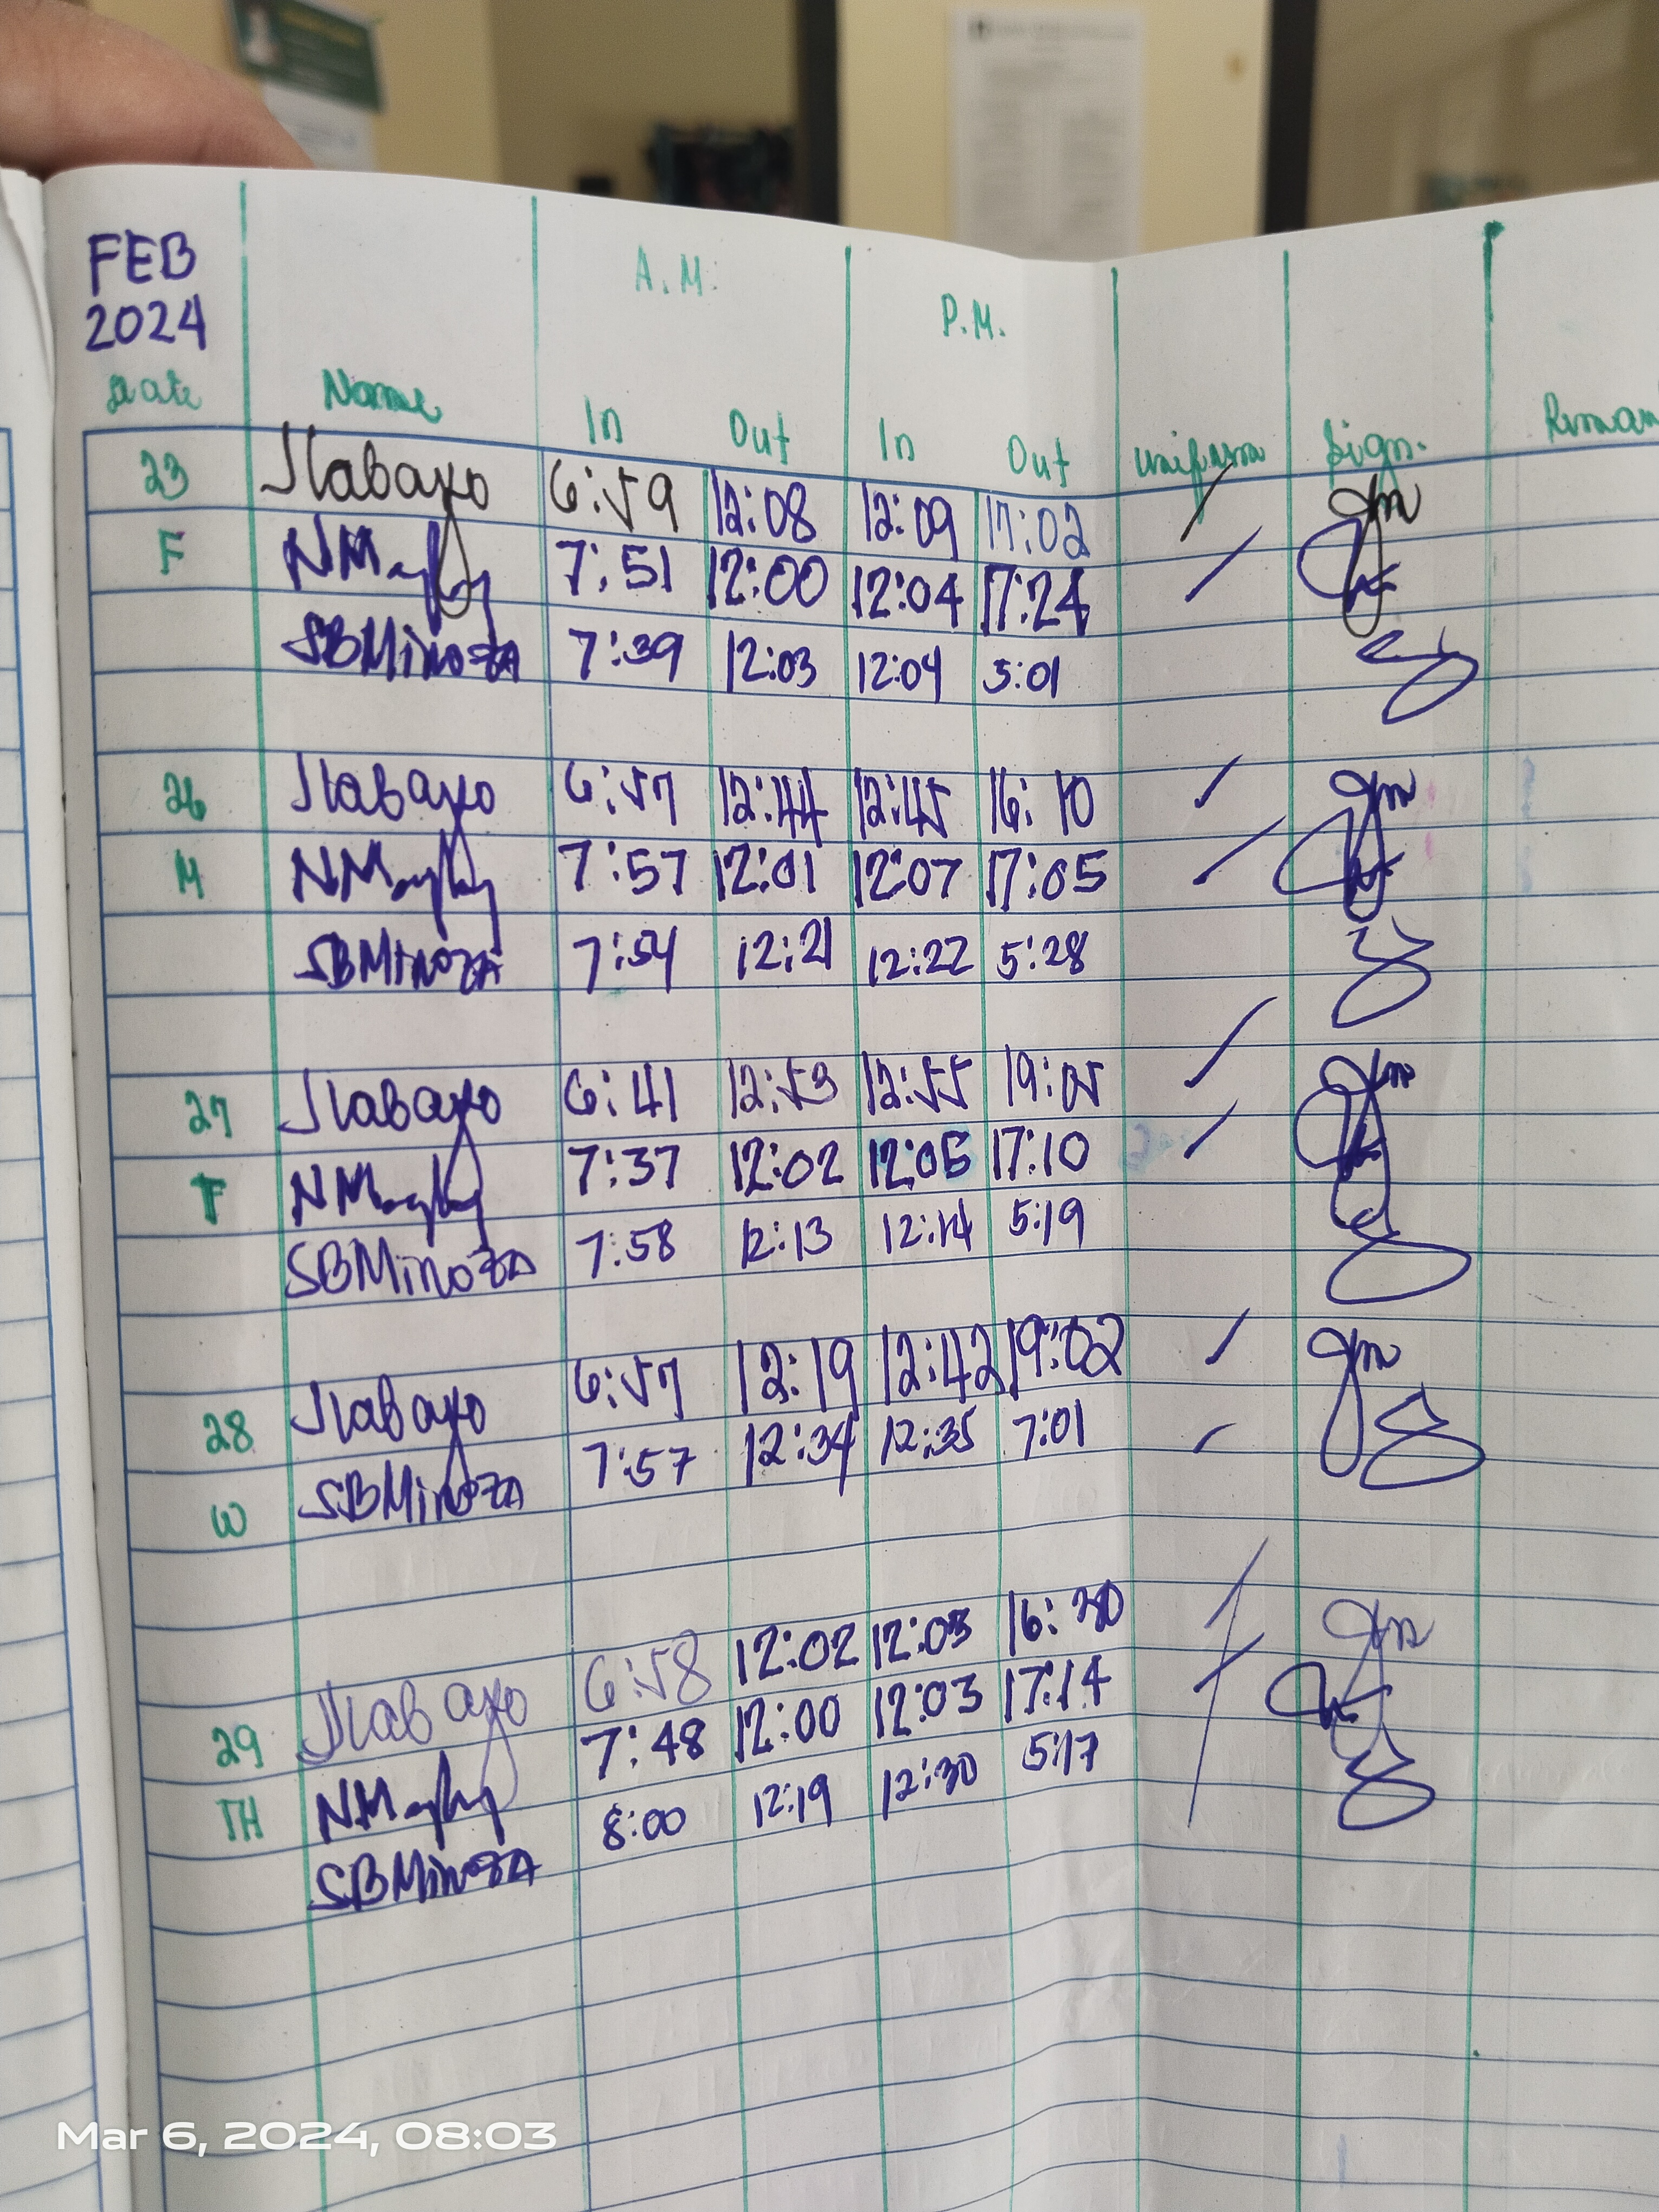 FEB
2024
A.M.
P.M.
Date Name In Out In Out Uniform Sign.
23 Jlabayo 6:59 12:08 12:09 17:02
F 7:51 12:00 12:04 17:24
SBMinoza 7:39 12:03 12:04 5:01
26 Jlabayo 6:57 12:44 12:45 16:10
M 7:57 12:01 12:07 17:05
SBMinoza 7:54 12:21 12:22 5:28
27 Jlabayo 6:41 12:53 12:55 19:05
T 7:37 12:02 12:05 17:10
SBMinoza 7:58 12:13 12:14 5:19
28 Jlabayo 6:57 12:19 12:42 19:02
W SBMinoza 7:57 12:34 12:35 7:01
29 Jlabayo 6:58 12:02 12:03 16:30
TH 7:48 12:00 12:03 17:14
SBMinoza 8:00 12:19 12:30 5:17
Mar 6, 2024, 08:03